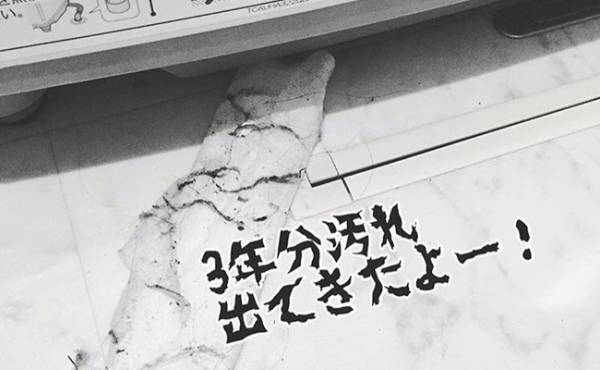 い。
3年分汚れ
出てきたよー!